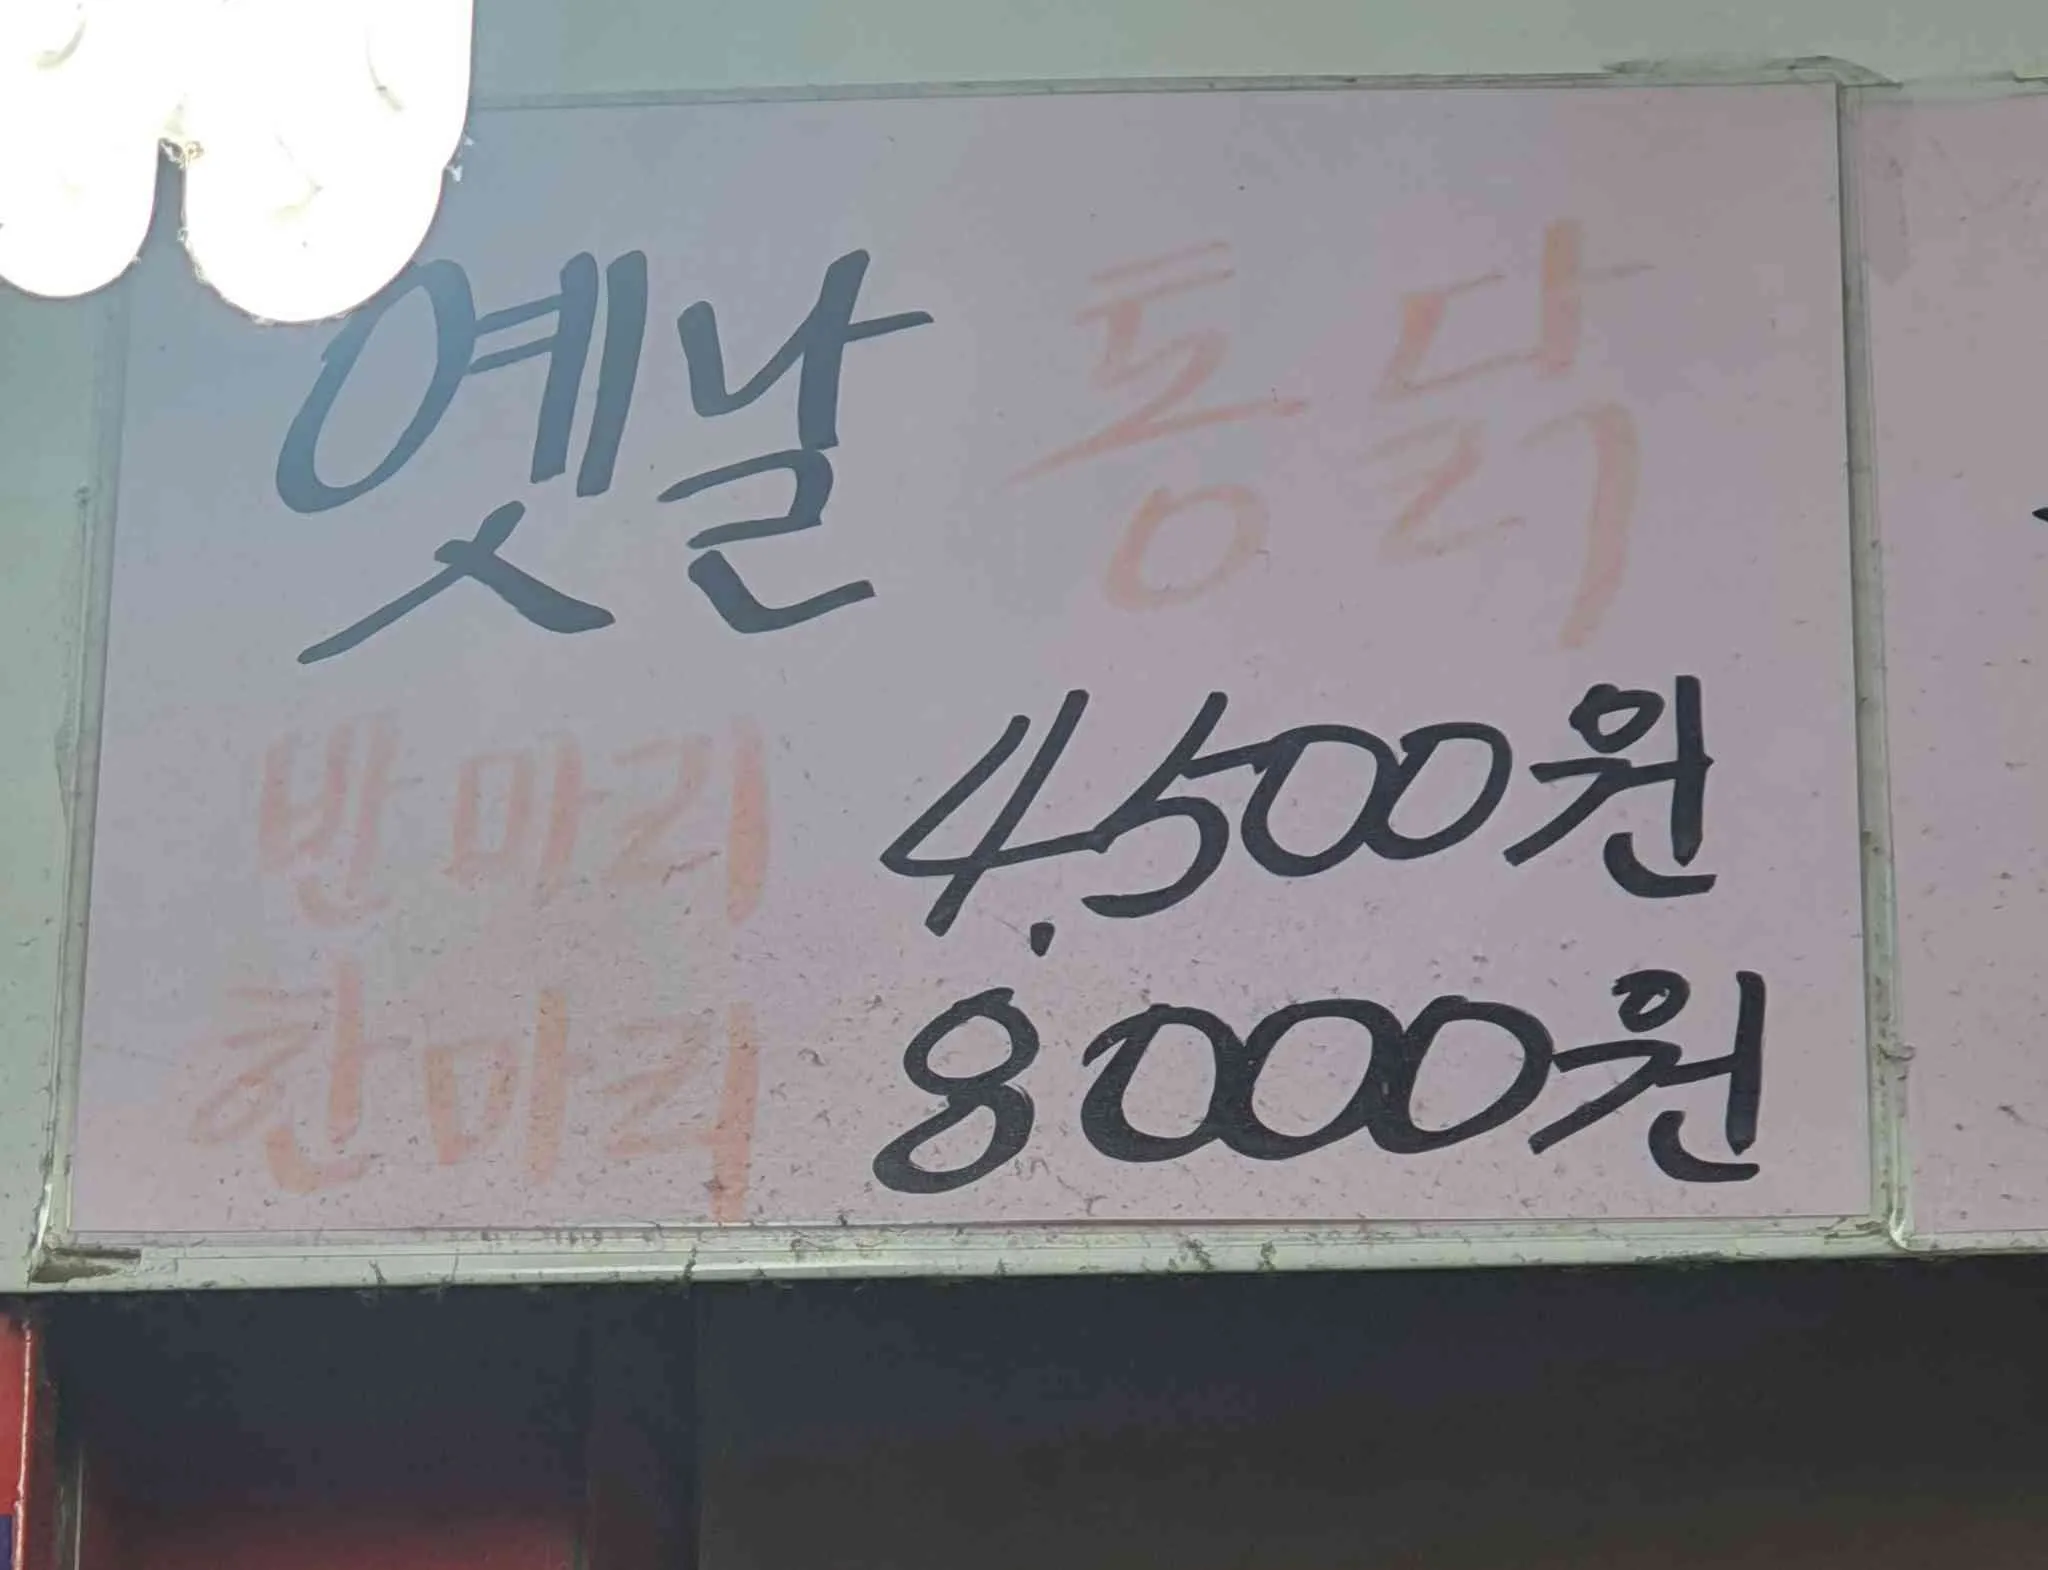 옛날 통닭
반마리 4,500원
한마리 8,000원